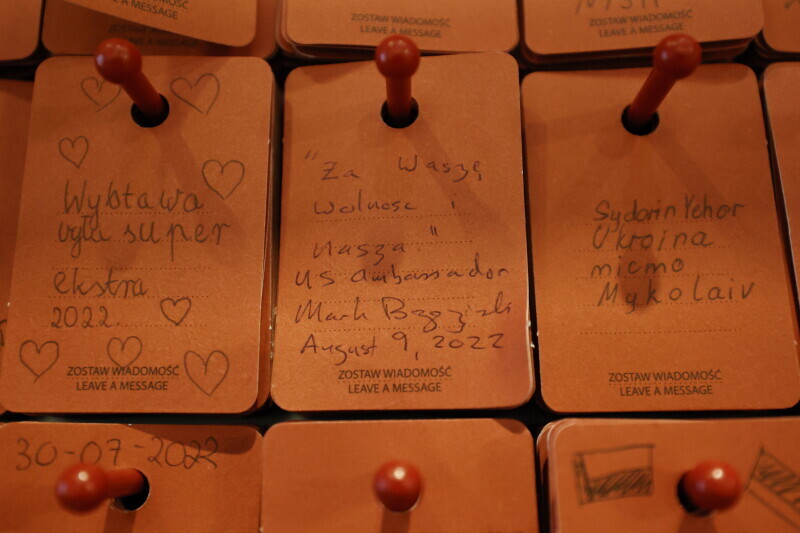 ZOSTAW WIADOMOŚĆ
LEAVE A MESSAGE
ZOSTAW WIADOMOŚĆ
LEAVE A MESSAGE
ZOSTAW WIADOMOŚĆ
LEAVE A MESSAGE
Wybtawa
była super
ekstra
2022.
ZOSTAW WIADOMOŚĆ
LEAVE A MESSAGE
"Za Waszą
wolność i
naszą"
US ambassador
Mark Brzezinski
August 9, 2022
ZOSTAW WIADOMOŚĆ
LEAVE A MESSAGE
Sydorin Yehor
Ukroina
micmo
Mykolaiv
ZOSTAW WIADOMOŚĆ
LEAVE A MESSAGE
30-07-2022